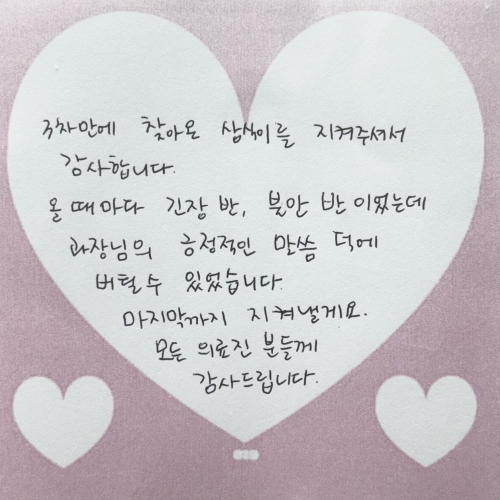 9차만에 찾아온 삼식이를 지켜주셔서
감사합니다.
올 때마다 긴장 반, 불안 반 이었는데
과장님의 긍정적인 말씀 덕에
버틸 수 있었습니다.
마지막까지 지켜낼게요.
모든 의료진 분들께
감사드립니다.